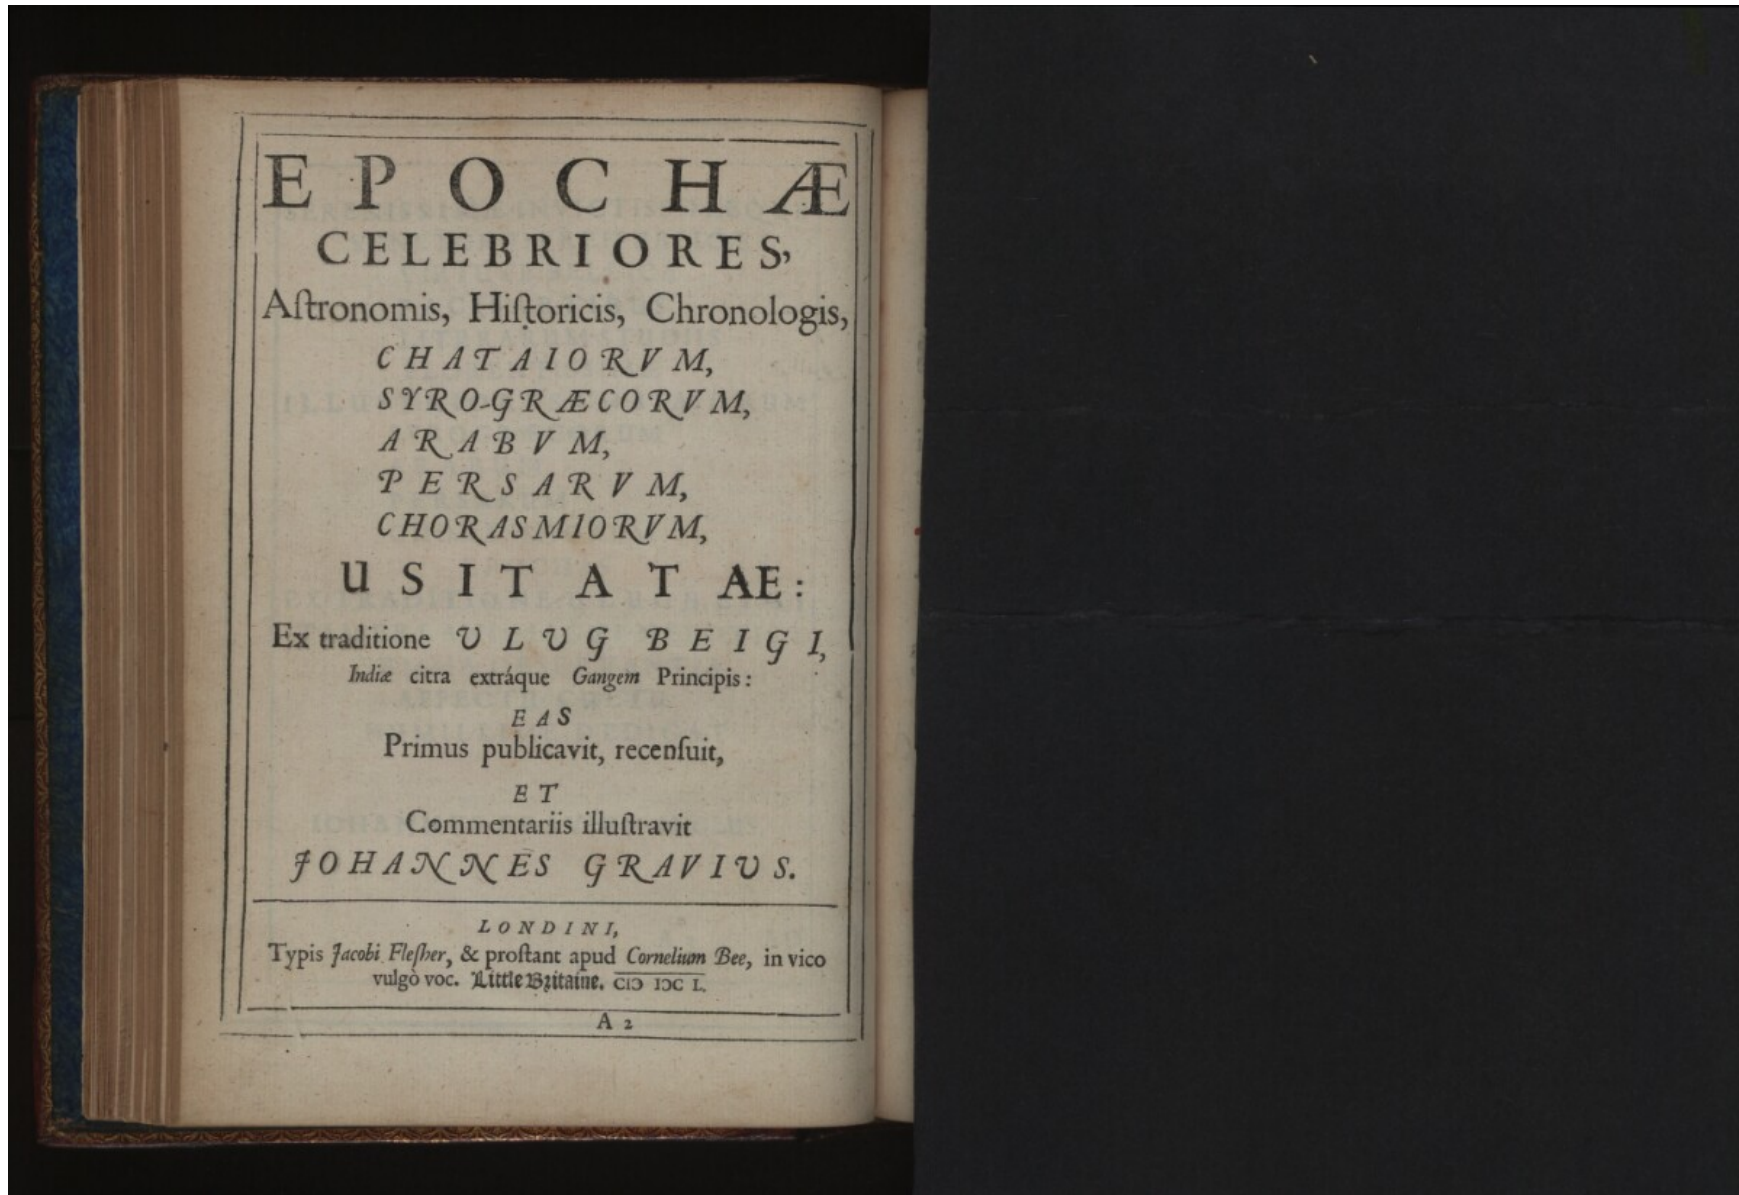 EPOCHÆ
CELEBRIORES,
Aſtronomis, Hiſtoricis, Chronologis,
CHATAIORVM,
SYRO-GRÆCORVM,
ARABVM,
PERSARVM,
CHORASMIORVM,
USITATAE:
Ex traditione ULUG BEIGI,
Indiæ citra extráque Gangem Principis:
EAS
Primus publicavit, recenſuit,
ET
Commentariis illuſtravit
JOHANNES GRAVIUS.
LONDINI,
Typis Jacobi Fleſher, & proſtant apud Cornelium Bee, in vico
vulgò voc. Little Britaine. CIƆ IƆC L.
A 2